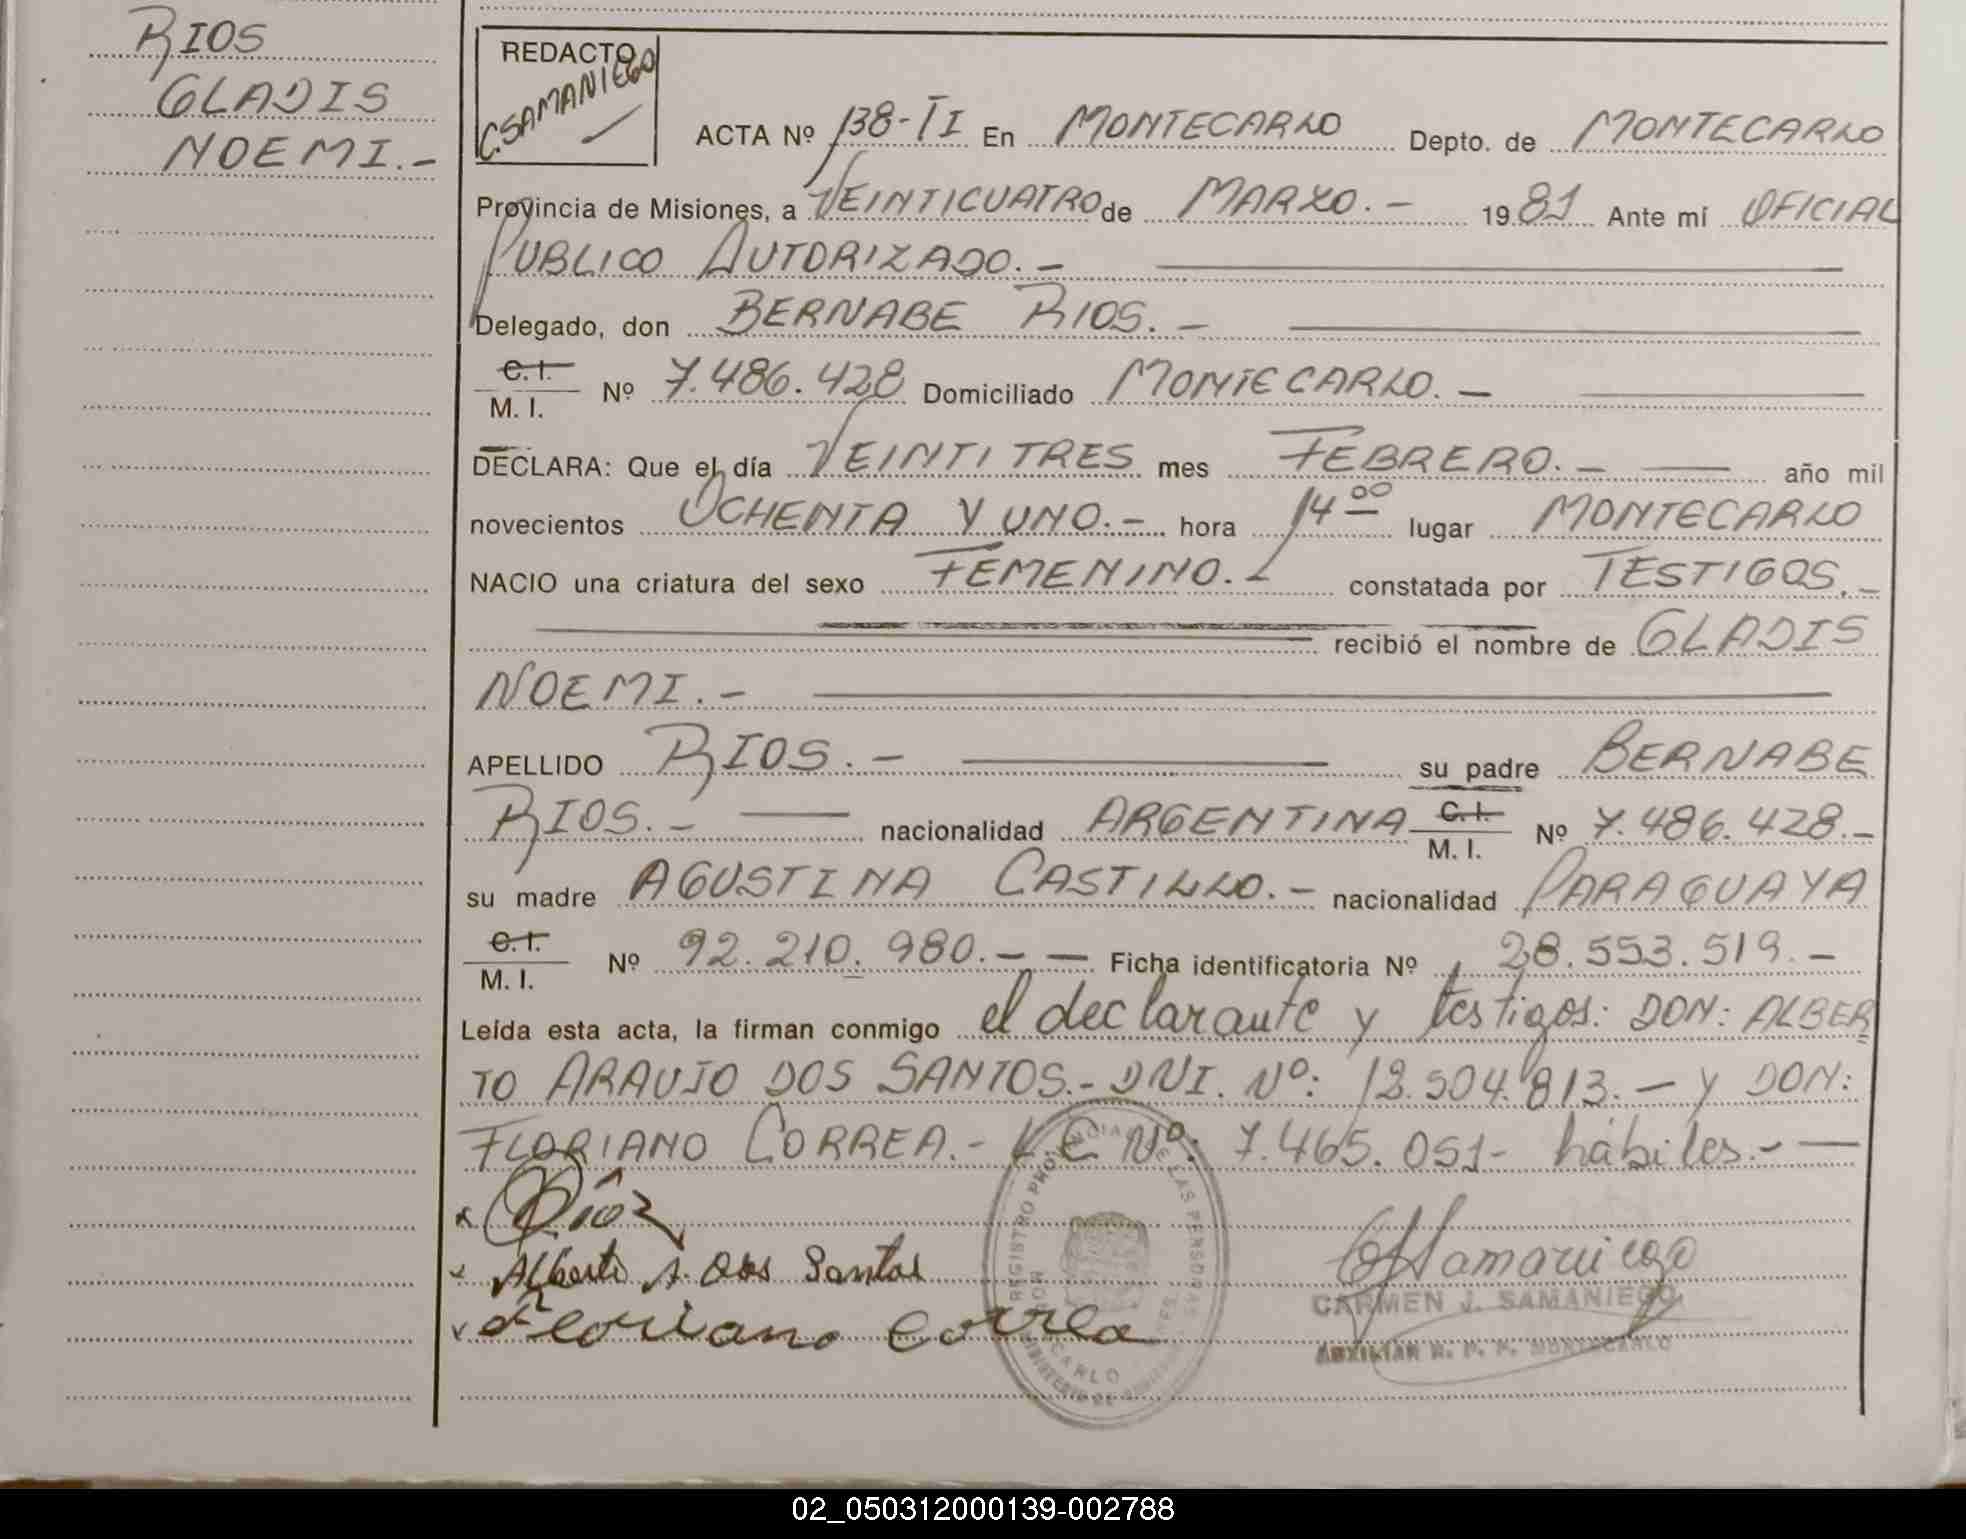 RIOS
GLADIS
NOEMI.-
REDACTO
C.SAMANIEGO
ACTA Nº 138-II En MONTECARLO Depto. de MONTECARLO
Provincia de Misiones, a VEINTICUATRO de MARZO.- 1981 Ante mí OFICIAL
PUBLICO AUTORIZADO.-
Delegado, don BERNABE RIOS.-
C. I.
M. I. Nº 7.486.428 Domiciliado MONTECARLO.-
DECLARA: Que el día VEINTITRES mes FEBRERO.- año mil
novecientos OCHENTA Y UNO.- hora 14 00 lugar MONTECARLO
NACIO una criatura del sexo FEMENINO.- constatada por TESTIGOS.-
recibió el nombre de GLADIS
NOEMI.-
APELLIDO RIOS.- su padre BERNABE
RIOS.- nacionalidad ARGENTINA C. I. M. I. Nº 7.486.428.-
su madre AGUSTINA CASTILLO.- nacionalidad PARAGUAYA
C. I.
M. I. Nº 92.210.980.- Ficha identificatoria Nº 28.553.519.-
Leída esta acta, la firman conmigo el declarante y testigos: DON: ALBER
TO ARAUJO DOS SANTOS.- DNI. Nº: 12.504.813.- y DON:
FLORIANO CORREA.- L.E Nº: 7.465.051- hábiles.-
Rios
Alberto A. Dos Santos
Floriano Correa
CSamaniego
CARMEN J. SAMANIEGO
AUXILIAR R. P. P. MONTECARLO
REGISTRO PROVINCIAL DE LAS PERSONAS
02_050312000139-002788